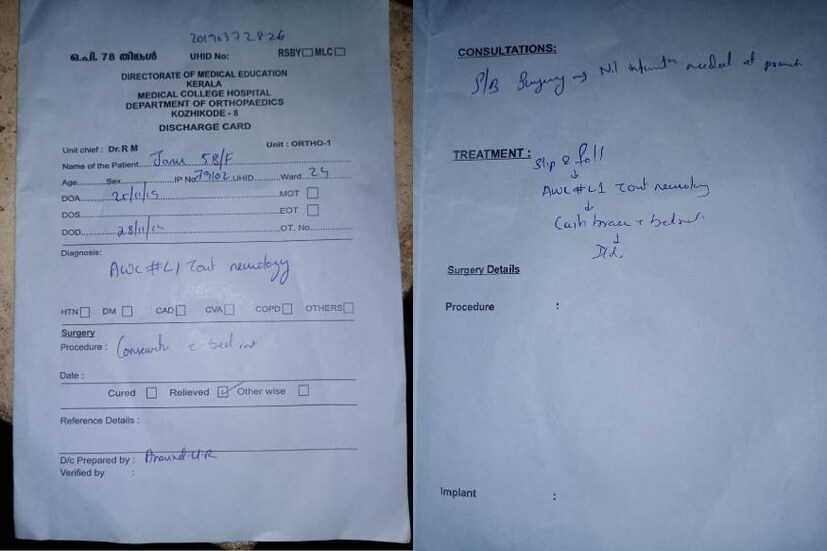 20190372826
ഒ.പി. 78 തിങ്കൾ UHID No: RSBY MLC
DIRECTORATE OF MEDICAL EDUCATION
KERALA
MEDICAL COLLEGE HOSPITAL
DEPARTMENT OF ORTHOPAEDICS
KOZHIKODE - 8
DISCHARGE CARD
Unit chief : Dr.R M Unit : ORTHO-1
Name of the Patient 58/F
Age Sex IP No 79102 UHID Ward 24
DOA MOT
DOS EOT
DOD 28/11/15 OT. No.
Diagnosis:
AWC # L1 neurology
HTN DM CAD CVA COPD OTHERS
Surgery
Procedure :
Date :
Cured Relieved Other wise
Reference Details :
D/c Prepared by : Aravind.U.R
Verified by :
CONSULTATIONS:
S/B Surgery → Nil needed at present
TREATMENT : Slip & fall
↓
AWC # L1 neurology
↓
↓
Surgery Details
Procedure :
Implant :